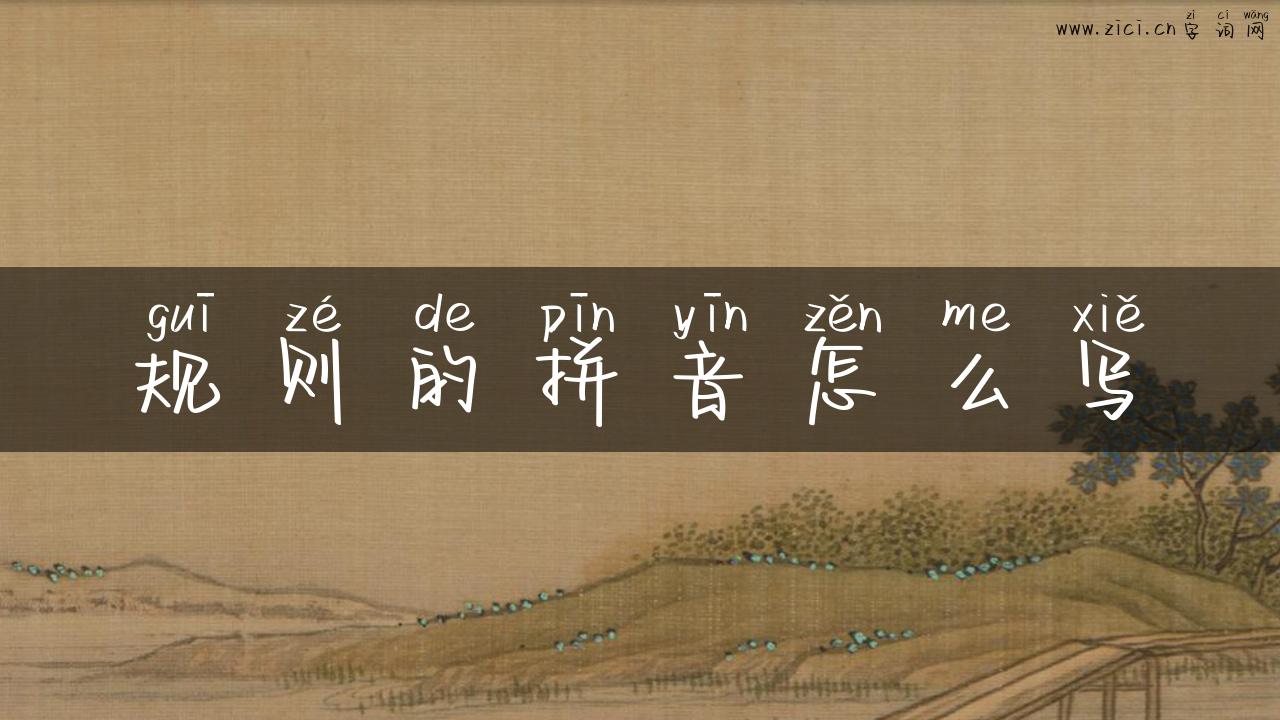 zì cí wǎng
www.zici.cn 字词网
guī zé de pīn yīn zěn me xiě
规则的拼音怎么写